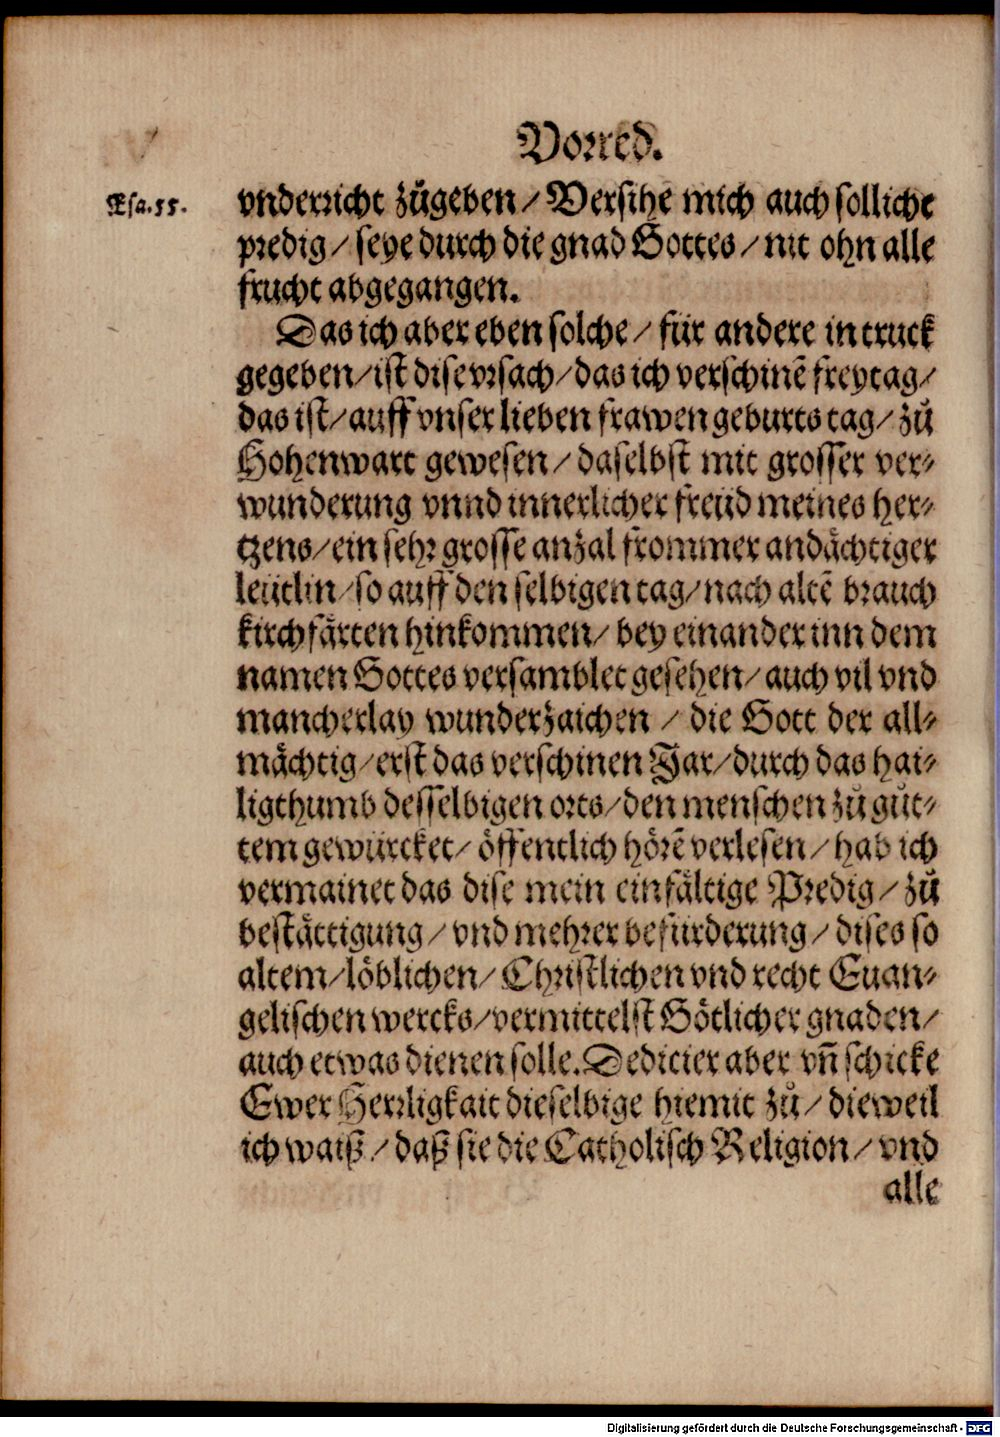 Vorred.
Esa.55.
vnderricht zůgeben / Versihe mich auch solliche
predig / seye durch die gnad Gottes / nit ohn alle
frucht abgegangen.
Das ich aber eben solche / für andere in truck
gegeben / ist dise vrsach / das ich verschinẽ freytag /
das ist / auff vnser lieben frawen geburts tag / zů
Hohenwart gewesen / daselbst mit grosser ver⸗
wunderung vnnd innerlicher freüd meines her⸗
tzens / ein sehr grosse anzal frommer andächtiger
leütlin / so auff den selbigen tag / nach altẽ brauch
kirchfärten hinkommen / bey einander inn dem
namen Gottes versamblet gesehen / auch vil vnd
mancherlay wunderzaichen / die Gott der all⸗
mächtig / erst das verschinen Jar / durch das hai⸗
ligthumb desselbigen orts / den menschen zů gůt⸗
tem gewürcket / öffentlich hörẽ verlesen / hab ich
vermainet das dise mein einfältige Predig / zů
bestättigung / vnd mehrer befürderung / dises so
altem / löblichen / Christlichen vnd recht Euan⸗
gelischen wercks / vermittelst Götlicher gnaden /
auch etwas dienen solle. Dedicier aber vñ schicke
Ewer Herrligkait dieselbige hiemit zů / dieweil
ich waiß / daß sie die Catholisch Religion / vnd
alle
Digitalisierung gefördert durch die Deutsche Forschungsgemeinschaft - DFG